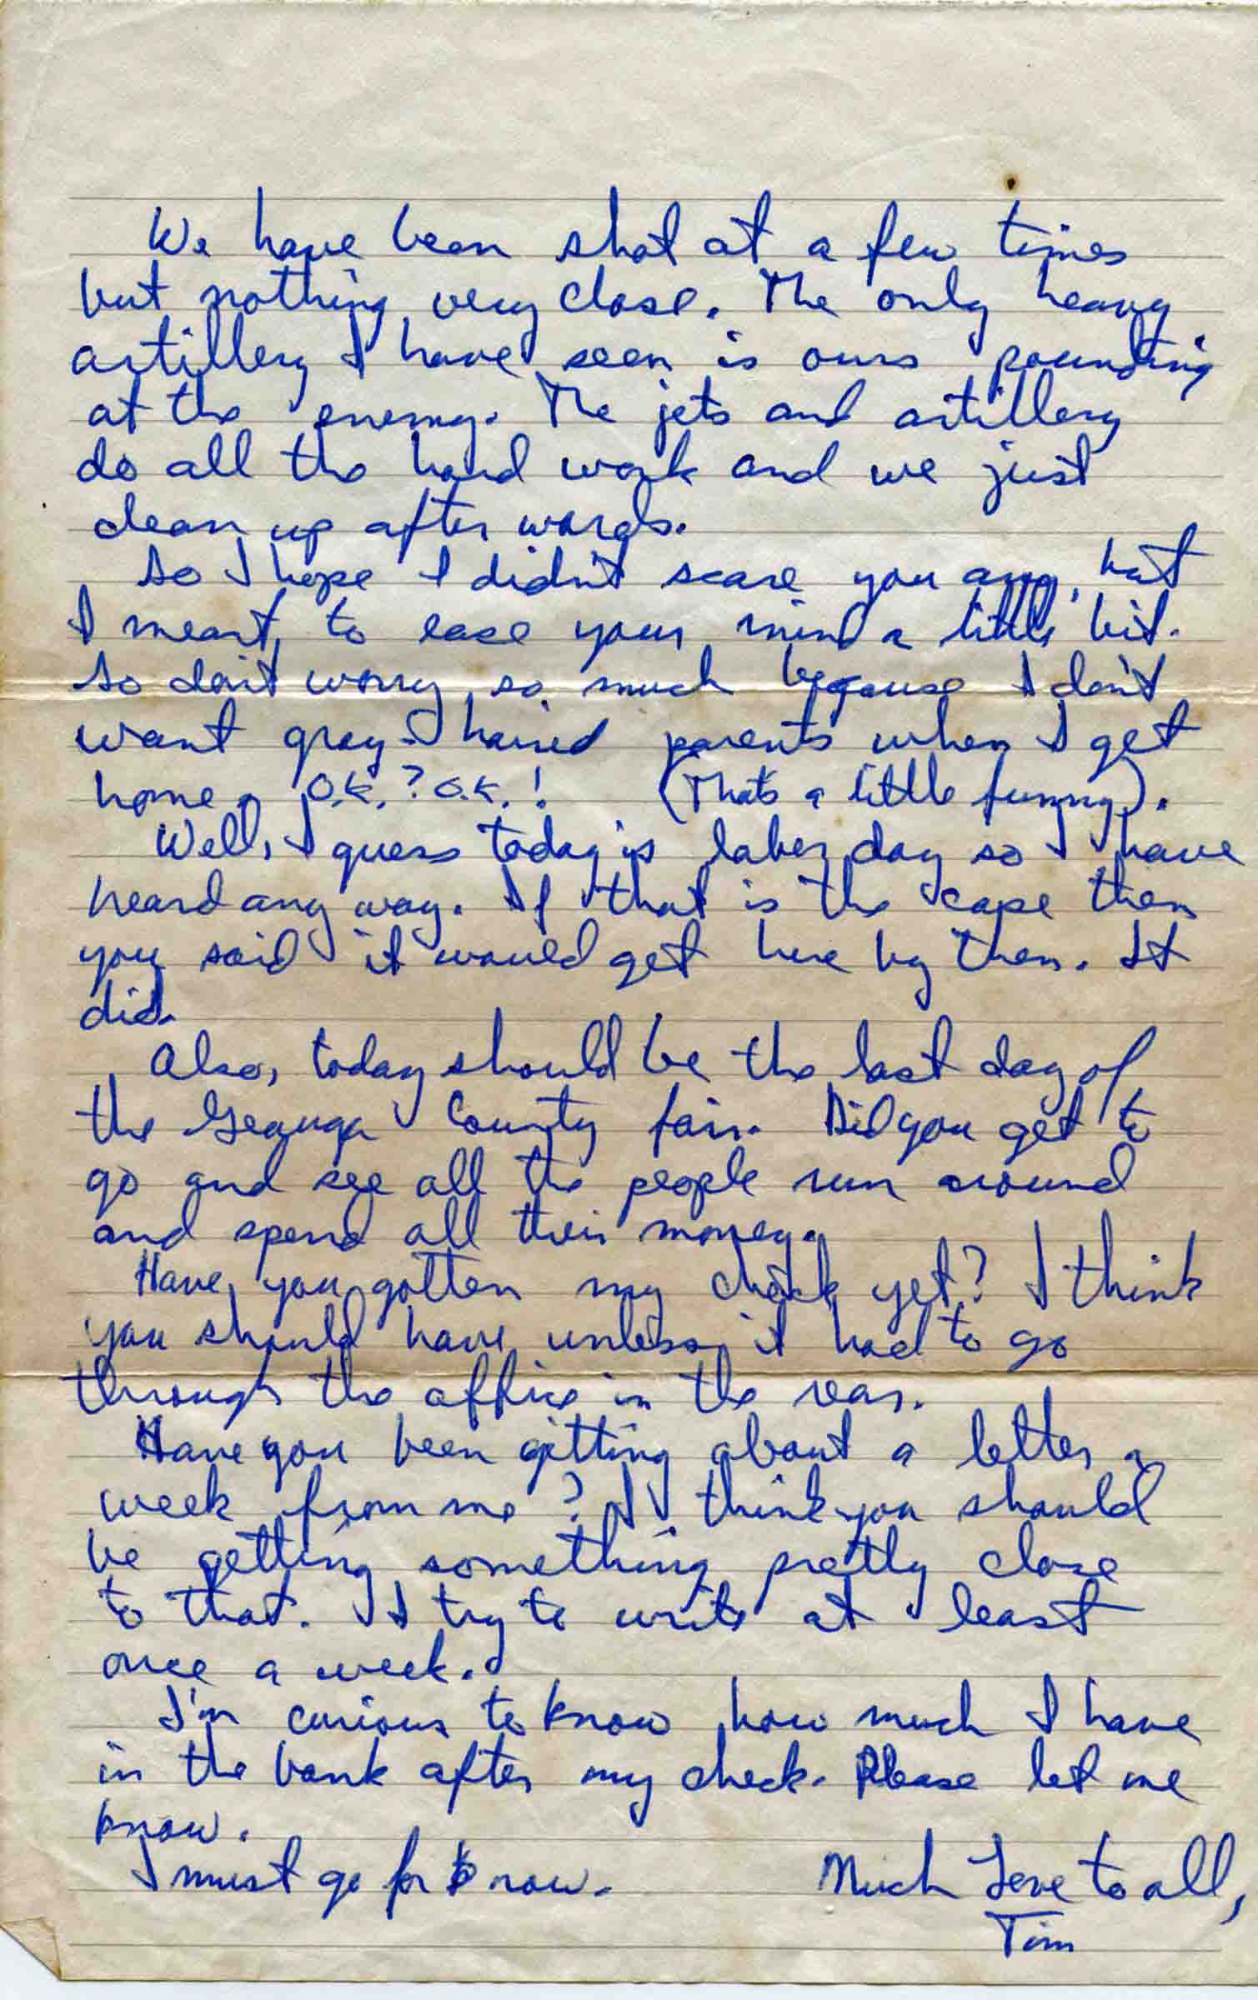 We have been shot at a few times
but nothing very close. The only heavy
artillery I have seen is ours pounding
at the enemy. The jets and artillery
do all the hard work and we just
clean up after wards.
So I hope I didn't scare you any, but
I meant to ease your mind a little bit.
So don't worry so much because I don't
want gray-haired parents when I get
home. O.K.? O.K.! (That's a little funny).
Well, I guess today is labor day so I have
heard any way. If that is the case then
you said it would get here by then. It
did.
Also, today should be the last day of
the Geauga County fair. Did you get to
go and see all the people run around
and spend all their money.
Have you gotten my check yet? I think
you should have unless it had to go
through the office in the rear.
Have you been getting about a letter a
week from me? I think you should
be getting something pretty close
to that. I try to write at least
once a week.
I'm curious to know how much I have
in the bank after my check. Please let me
know.
I must go for now. Much Love to all,
Tim